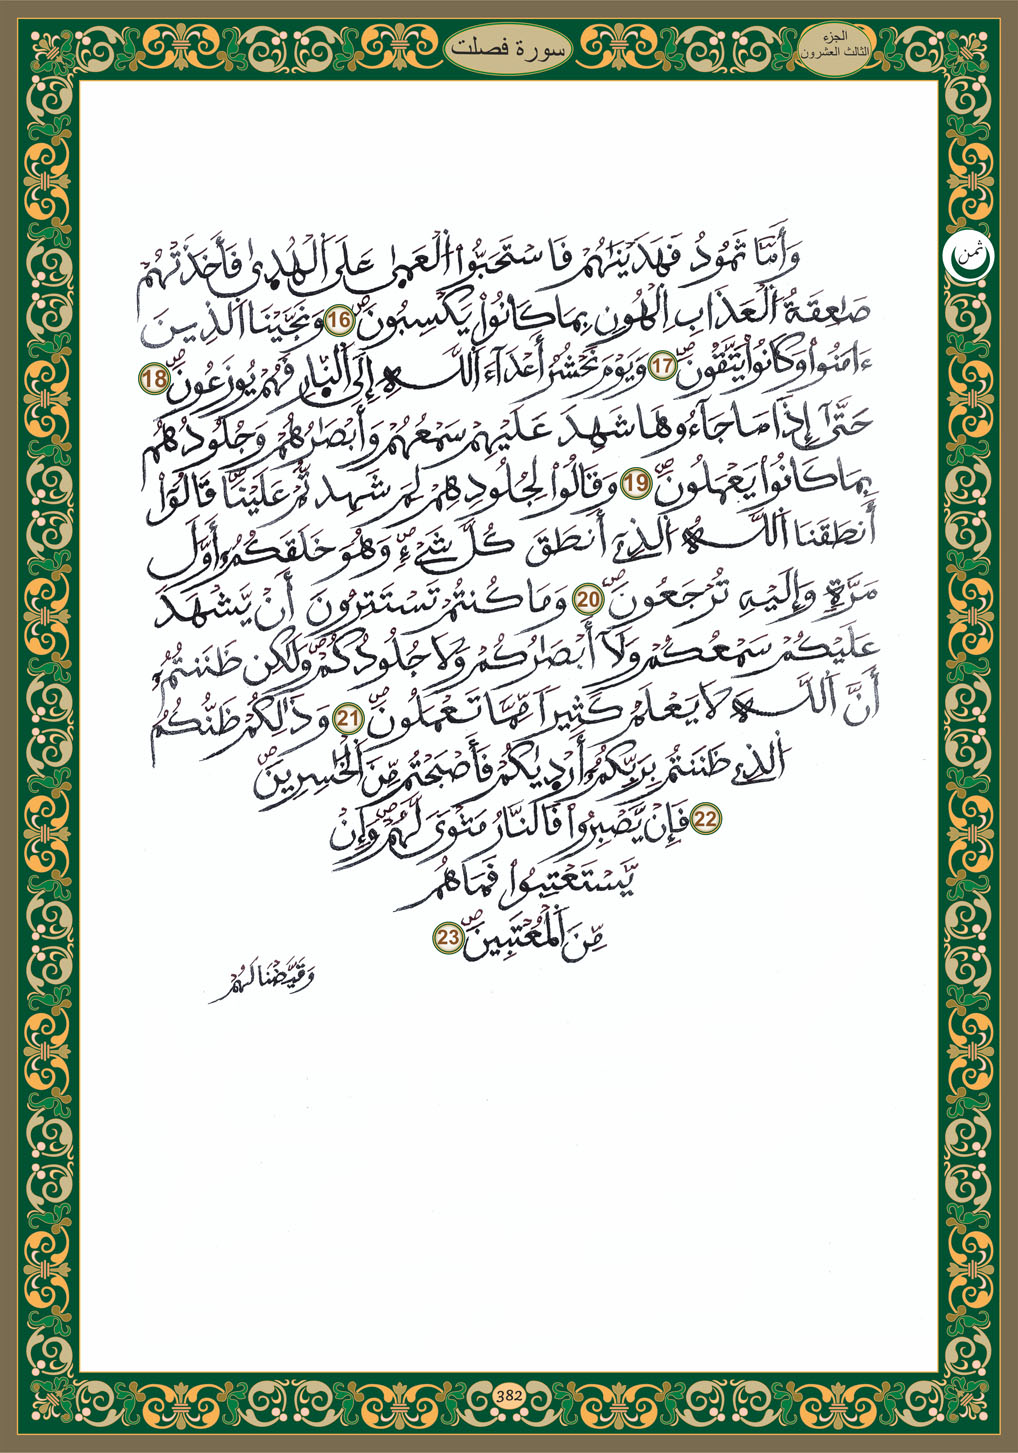 الجزء
الثالث العشرون
سورة فصلت
ثمن
وَأَمَّا ثَمُودُ فَهَدَيْنَٰهُمْ فَاسْتَحَبُّوا۟ الْعَمۭيٰ عَلَى اَلْهُدۭيٰ فَأَخَذَتْهُمْ
صَٰعِقَةُ الْعَذَابِ اِلْهُونِ بِمَا كَانُوا۟ يَكْسِبُونَۖ 16 وَنَجَّيْنَا اَلذِينَ
ءَامَنُوا۟ وَكَانُوا۟ يَتَّقُونَۖ 17 وَيَوْمَ نَحْشُرُ أَعْدَآءَ اَللَّهِ إِلَى اَلنّ۪ارِ فَهُمْ يُوزَعُونَۖ 18
حَتَّىٰٓ إِذَا مَا جَآءُوهَا شَهِدَ عَلَيْهِمْ سَمْعُهُمْ وَأَبْصَٰرُهُمْ وَجُلُودُهُم
بِمَا كَانُوا۟ يَعْمَلُونَۖ 19 وَقَالُوا۟ لِجُلُودِهِمْ لِمَ شَهِدتُّمْ عَلَيْنَاۖ قَالُوٓا۟
أَنطَقَنَا اَللَّهُ اُلذِےٓ أَنطَقَ كُلَّ شَےْءٍۖ وَهُوَ خَلَقَكُمُۥٓ أَوَّلَ
مَرَّةٍ وَإِلَيْهِ تُرْجَعُونَۖ 20 وَمَا كُنتُمْ تَسْتَتِرُونَ أَنْ يَّشْهَدَ
عَلَيْكُمْ سَمْعُكُمْ وَلَآ أَبْصَٰرُكُمْ وَلَا جُلُودُكُمْۖ وَلَٰكِن ظَنَنتُمُۥٓ
أَنَّ اَللَّهَ لَا يَعْلَمُ كَثِيرًا مِّمَّا تَعْمَلُونَۖ 21 وَذَٰلِكُمْ ظَنُّكُمُ
اُلذِے ظَنَنتُم بِرَبِّكُمُۥٓ أَرْدۭيٰكُمْ فَأَصْبَحْتُم مِّنَ اَلْخَٰسِرِينَۖ
22 فَإِنْ يَّصْبِرُوا۟ فَالنَّارُ مَثْوًى لَّهُمْۖ وَإِنْ
يَّسْتَعْتِبُوا۟ فَمَا هُم
مِّنَ اَلْمُعْتَبِينَۖ 23
وَقَيَّضْنَا لَهُمْ
382